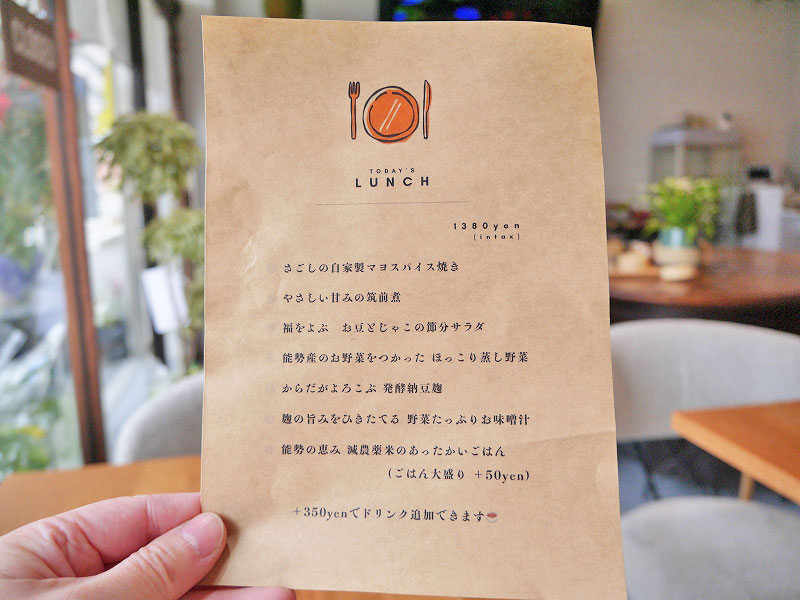 TODAY'S
LUNCH
1380yen
(intax)
さごしの自家製マヨスパイス焼き
やさしい甘みの筑前煮
福をよぶ　お豆とじゃこの節分サラダ
能勢産のお野菜をつかった ほっこり蒸し野菜
からだがよろこぶ 発酵納豆麹
麹の旨みをひきたてる 野菜たっぷりお味噌汁
能勢の恵み 減農薬米のあったかいごはん
(ごはん大盛り ＋50yen)
＋350yenでドリンク追加できます☕